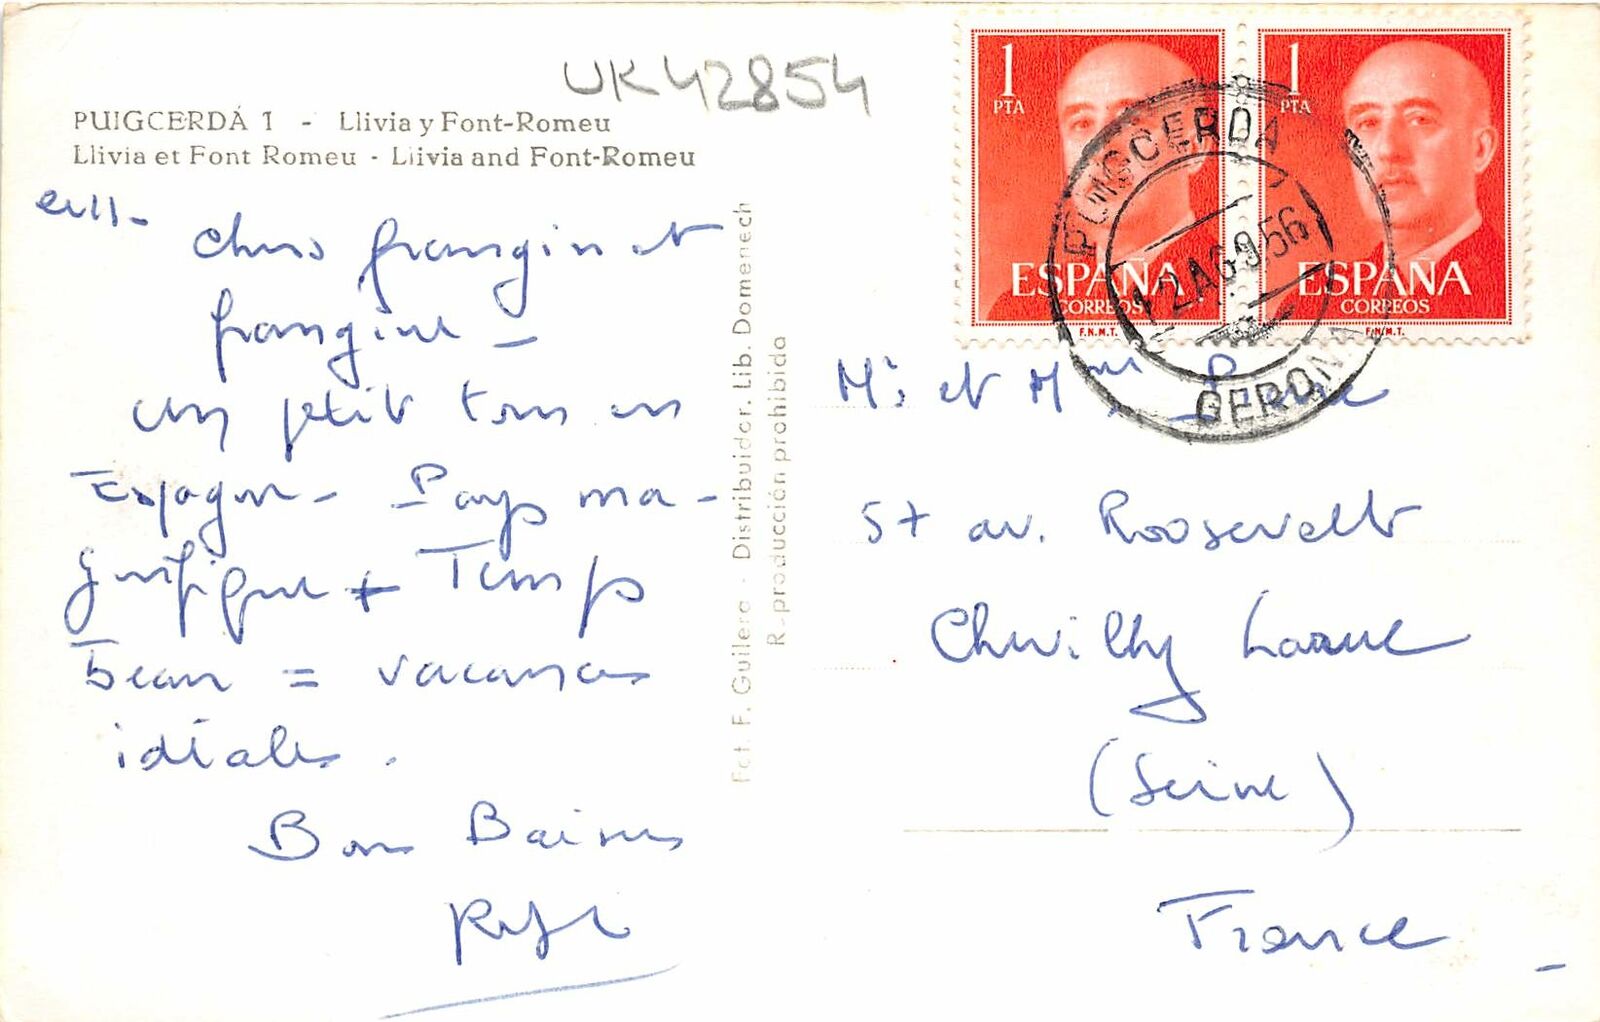 UK42854
PUIGCERDÁ 1 - Llivia y Font-Romeu
Llivia et Font Romeu - Llivia and Font-Romeu
Chers frangin et
frangine -
Un petit tour en
Espagne - Pays ma-
gnifique + Temps
Beau = vacances
idéales.
Bons Baisers
Fot. F. Guilera - Distribuidor. Lib. Domenech
Reproducción prohibida
1
PTA
ESPAÑA
CORREOS
F.N.M.T.
1
PTA
ESPAÑA
CORREOS
F.N.M.T.
PUIGCERDA
12 AGO 56
GERONA
Mr et Mme
57 av. Roosevelt
Chevilly Larue
(Seine)
France